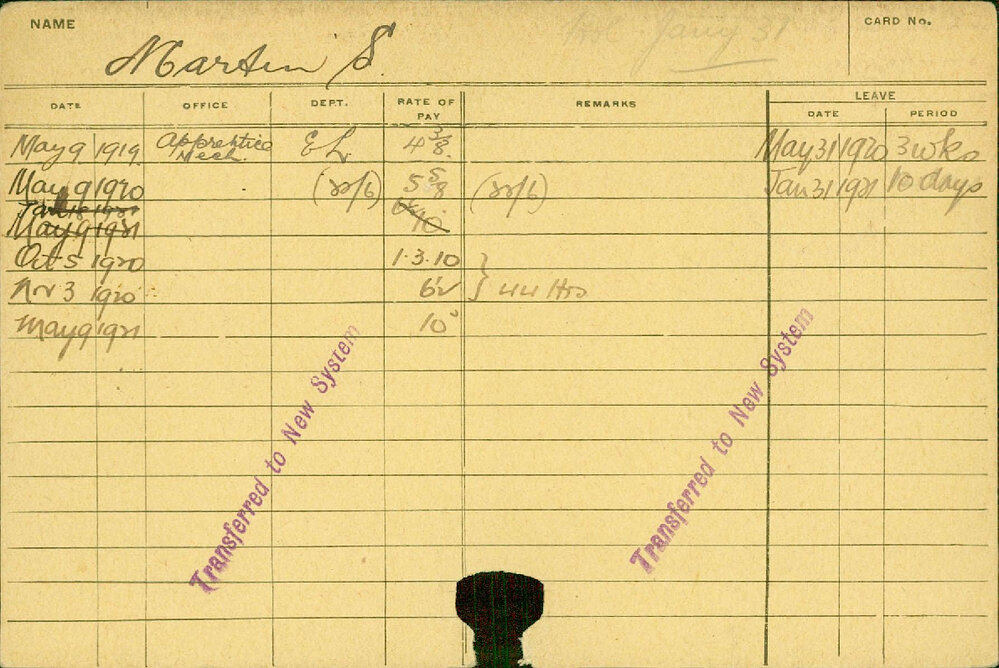 NAME
CARD No.
Martin S.
Jany 31
DATE OFFICE DEPT. RATE OF PAY REMARKS LEAVE
DATE PERIOD
May 9 1919 Apprentice Mech. EL 4 3/8. May 31 1920 3 wks
May 9 1920 5 5/8 Jan 31 1921 10 days
May 9 1921 10
Oct 5 1920 1.3.10
Nov 3 1920 44 Hrs
May 9 1921 10
Transferred to New System
Transferred to New System